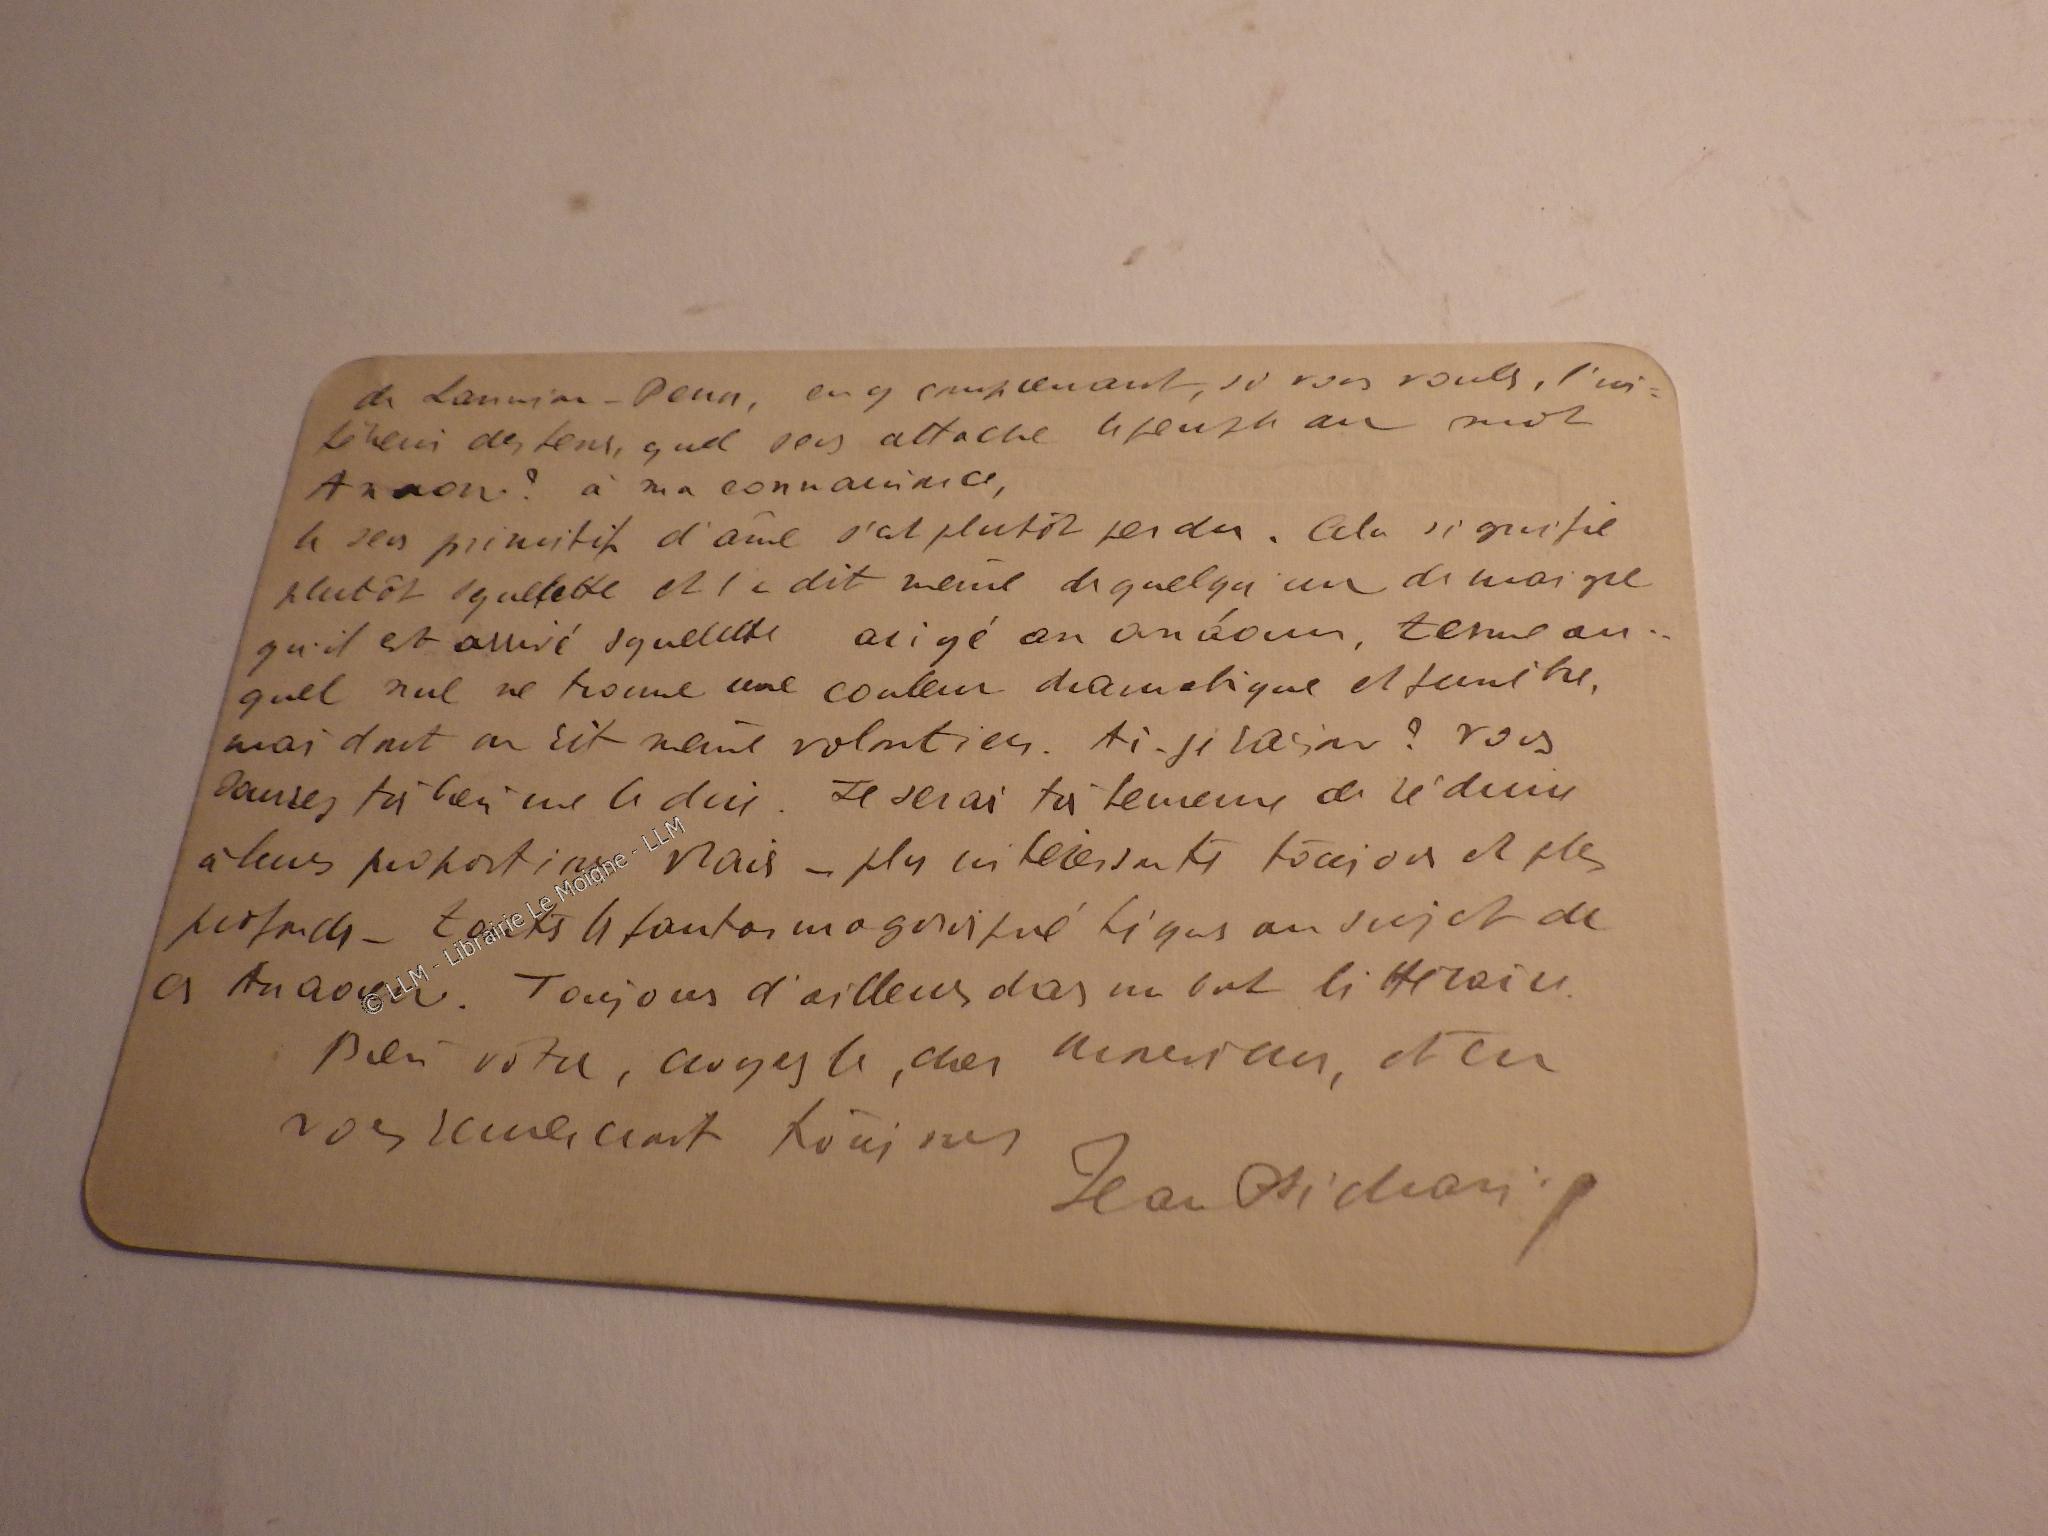 de Lannion - Penn, en y comprenant, si vous voulez, l'in=
térieur des terres, quel sens attache le peuple au mot
Anaon? à ma connaissance,
le sens primitif d'âme s'est plutôt perdu. Cela signifie
plutôt squelette et se dit même de quelqu'un de maigre
qu'il est arrivé squelette an anaoun, terme au-
quel nul ne trouve une couleur dramatique et funèbre,
mais dont on rit même volontiers. Ai-je raison? Vous
saurez très bien me le dire. Je serai très heureux de réduire
à leurs proportions vraies - plus intéressantes toujours et plus
profondes - toutes les fantasmagories au sujet de
ces Anaoun. Toujours d'ailleurs dans un but littéraire.
Bien vôtre, croyez le, cher Monsieur, et en
vous remerciant toujours
Jean
© LLM - Librairie Le Moigne - LLM